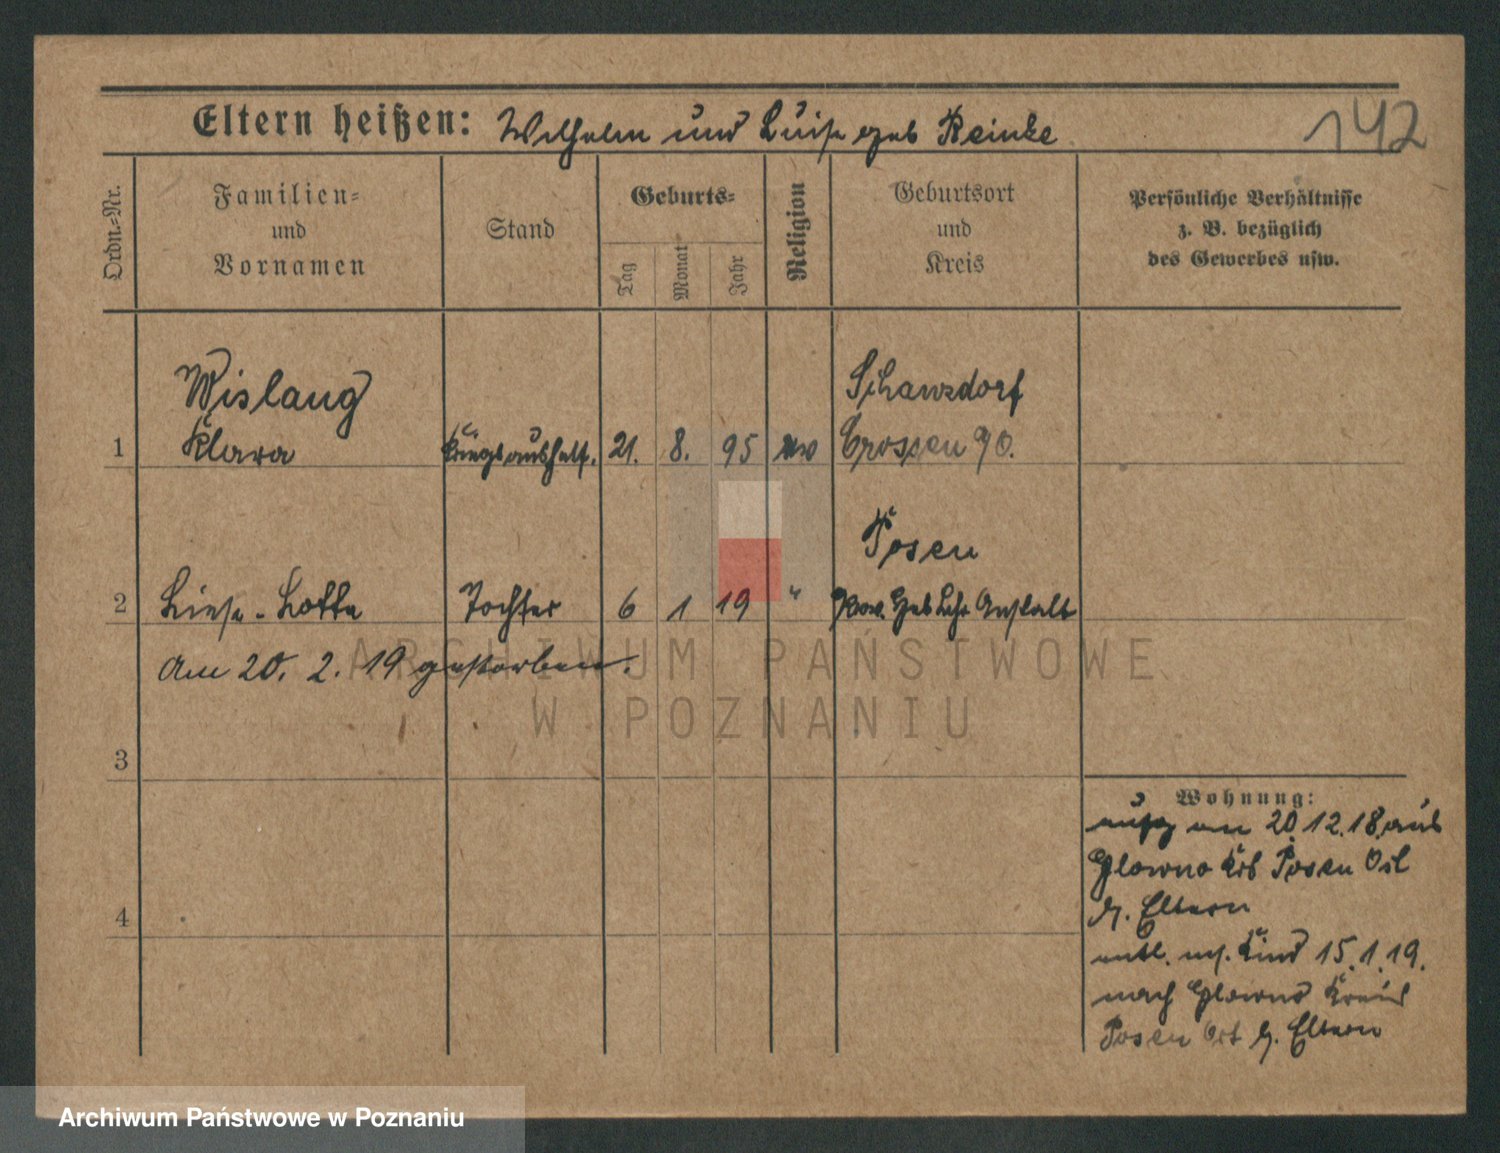 Eltern heißen: Wilhelm und Luise geb Reinke
142
Ordn.-Nr.
Familien-
und
Vornamen
Stand
Geburts-
Tag
Monat
Jahr
Religion
Geburtsort
und
Kreis
Persönliche Verhältnisse
z. B. bezüglich
des Gewerbes usw.
Wislaug
Schansdorf
1 Klara Kriegsaushelf. 21. 8. 95 ev Crossen
Posen
2 Liese-Lotte Tochter 6 1 19 " Prov. Heb Lehr Anstalt
am 20. 2. 19 gestorben.
3
4
Wohnung:
zuzg am 20.12.18 aus
Glowno Krs Posen Ost
b. Eltern
entl. m. Kind 15.1.19.
nach Glowno Kreis
Posen Ost b. Eltern
ARCHIWUM PAŃSTWOWE
W POZNANIU
Archiwum Państwowe w Poznaniu